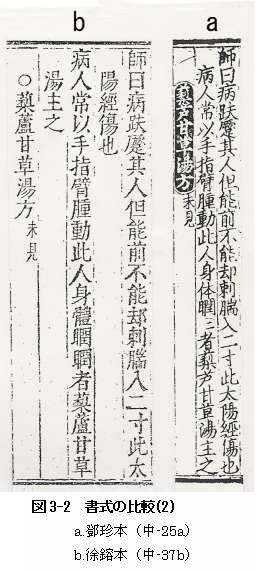 b
a
師曰病趺蹷其人但能前不能却刺腨入二寸此太陽經傷也
病人常以手指臂腫動此人身体瞤〻者藜芦甘草湯主之
藜芦甘草湯方 未見
師曰病趺蹷其人但能前不能却刺腨入二寸此太
陽經傷也
病人常以手指臂腫動此人身體瞤瞤者藜蘆甘草
湯主之
○藜蘆甘草湯方 未見
図3-2 書式の比較(2)
a.鄧珍本 (中-25a)
b.徐鎔本 (中-37b)